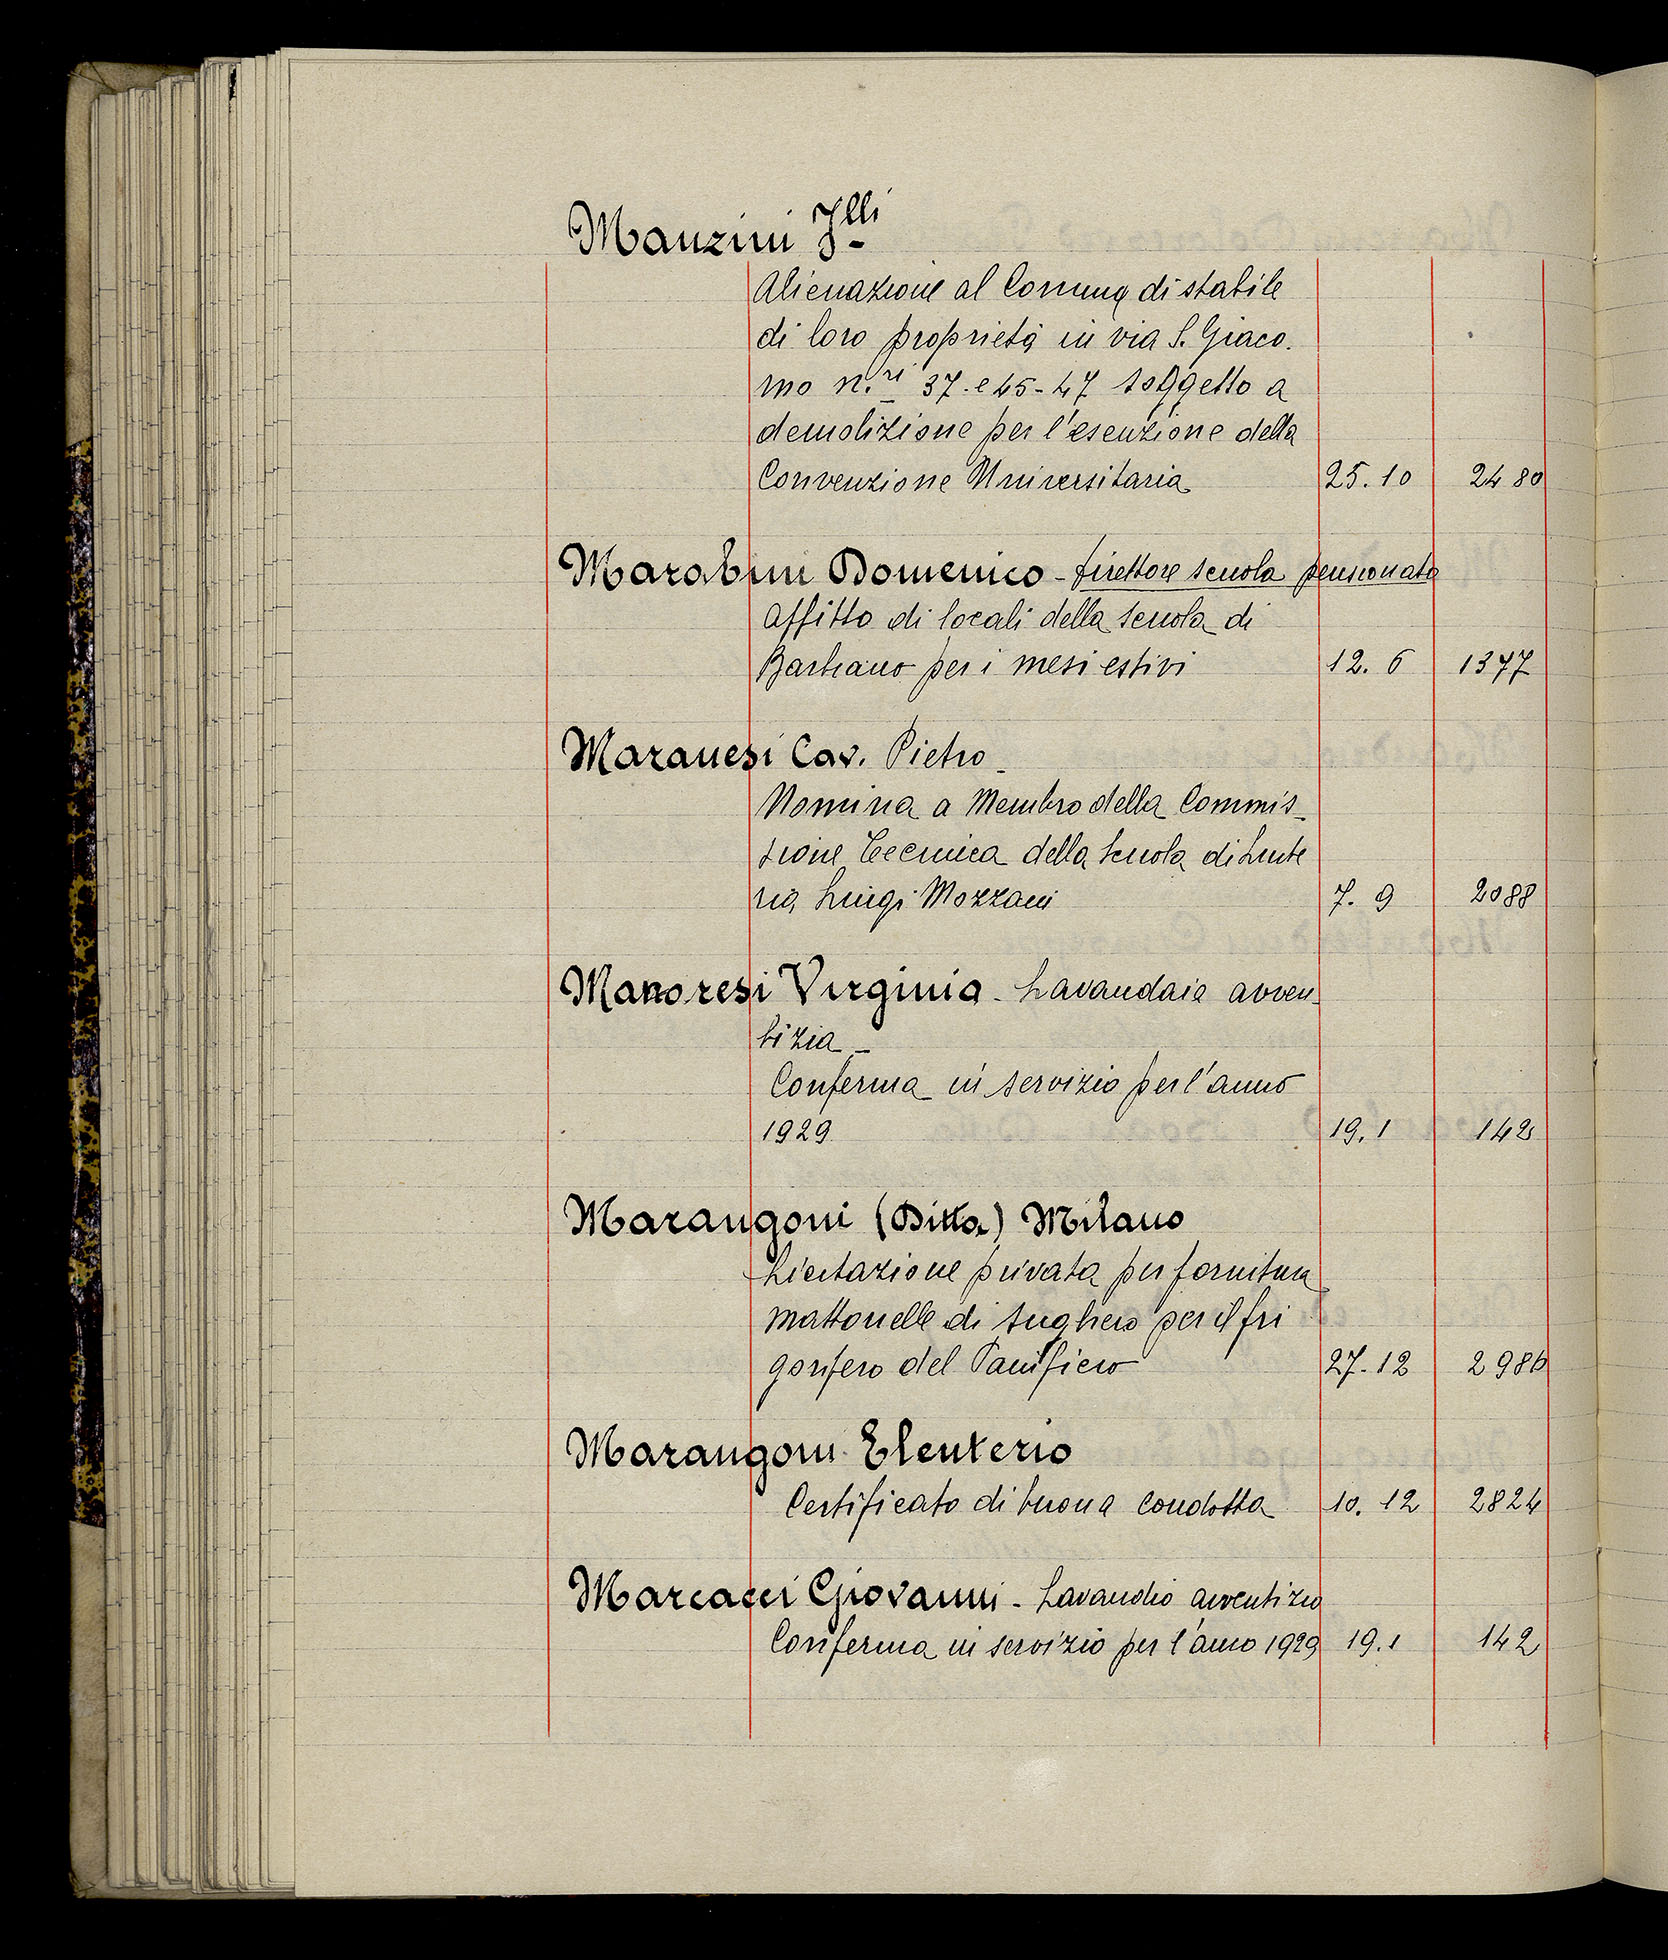 Manzini F.lli
Alienazione al Comune di stabile
di loro proprietà in via S. Giaco.
mo n.ri 37. e 45-47 soggetto a
demolizione per l'esenzione della
Convenzione Universitaria 25.10 2480
Marabini Domenico - direttore scuola pensionato
Affitto di locali della scuola di
Barbiano per i mesi estivi 12. 6 1377
Maranesi Cav. Pietro -
Nomina a Membro della Commis-
sione Tecnica della Scuola di Liute
ria Luigi Mozzani 7. 9 2088
Manoresi Virginia - Lavandaia avven-
tizia -
Conferma in servizio per l'anno
1929 19.1 142
Marangoni (Ditta) Milano
Licitazione privata per fornitura
mattonelle di sughero per il fri
gorifero del Panificio 27.12 2986
Marangoni Eleuterio
Certificato di buona condotta 10. 12 2824
Marcacci Giovanni - Lavandaio avventizio
Conferma in servizio per l'anno 1929 19.1 142